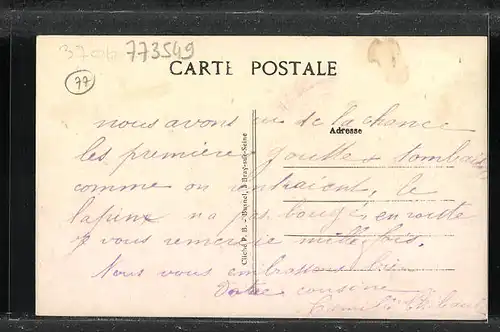 3706 773549
77
CARTE POSTALE
nous avons eu de la chance
Adresse
les première goutte tombais
comme on rentraient, le
lapin na pas bougé en route
je vous remercie mille fois.
Nous vous embrassons bien
Votre cousine
Cliché P. B. - Besnel, à Bray-sur-Seine